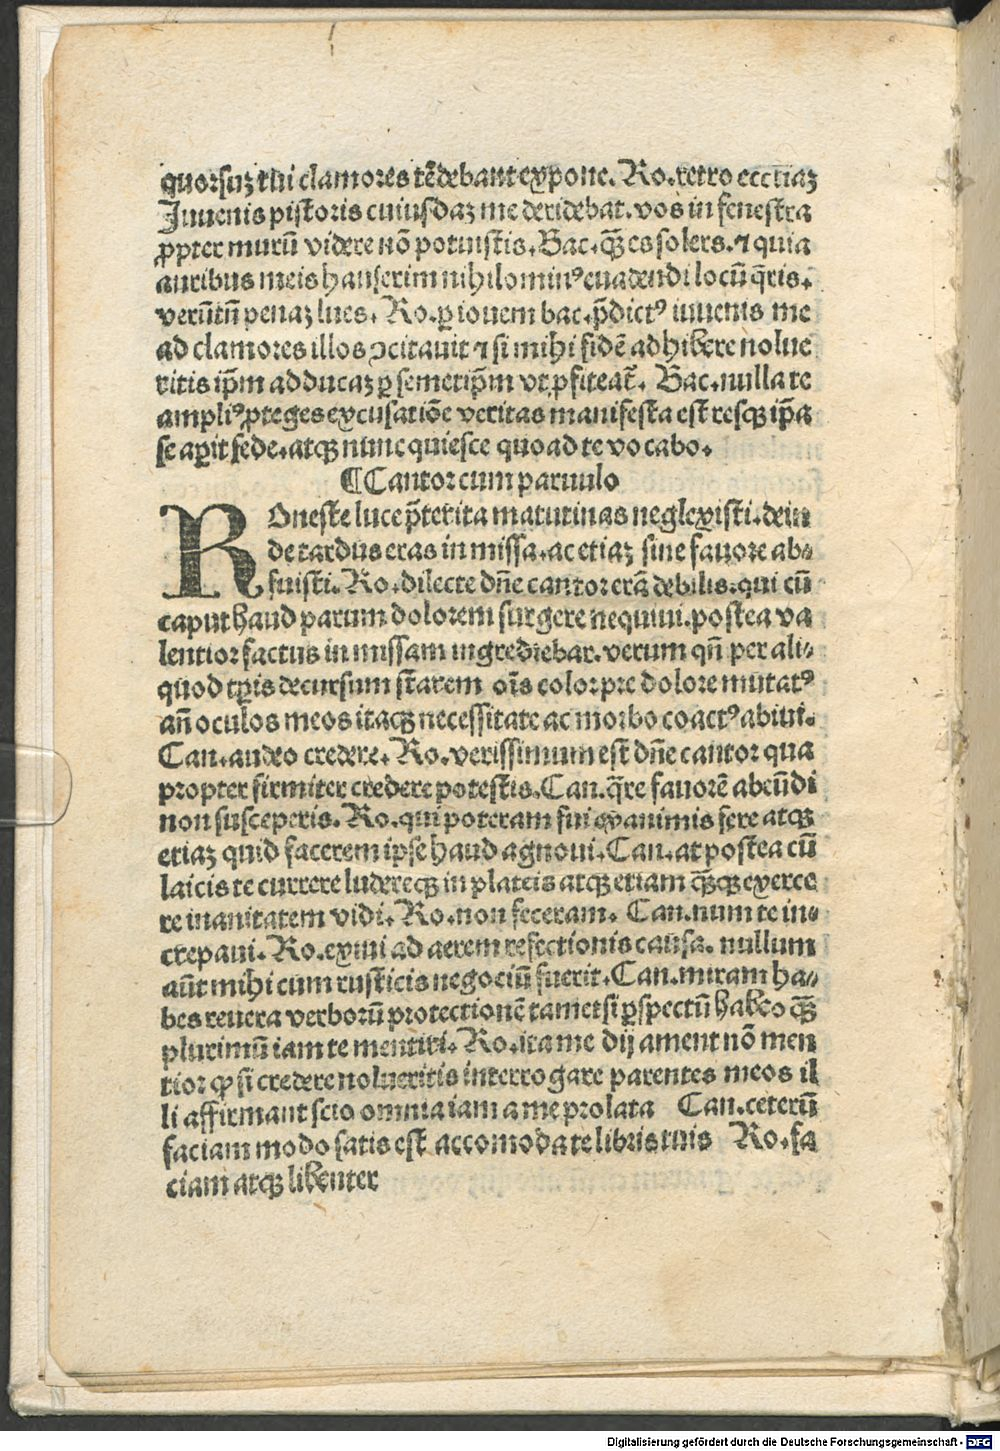 quorsuꝫ tui clamores tēdebant expone. Ro. retro eccliaꝫ
Juuenis pistoris cuiusdaꝫ me deridebat. vos in fenestra
ꝓpter murū videre nō potuistis. Bac. q̄ꝫ es solers. ⁊ quia
auribus meis hauserim nihilominꝰ euadendi locū q̄ris.
verūtñ penaꝫ lues. Ro. ꝑ iouem bac. p̄dictꝰ iuuenis me
ad clamores illos ↄcitauit ⁊ si mihi fidē adhibere nolue
ritis ip̄m adducaꝫ ꝑ semetip̄m vt ꝓfiteat̄. Bac. nulla te
ampliꝰ ꝓteges excusatiōe veritas manifesta est resqꝫ ip̄a
se aꝑit sede. atqꝫ nunc quiesce quoad te vocabo.
¶ Cantor cum paruulo
ROneste luce p̄terita matutinas neglexisti. dein
de tardus eras in missa. ac etiaꝫ sine fauore ab⸗
fuisti. Ro. dilecte dñe cantor erā debilis. qui cū
caput haud parum dolorem surgere nequiui. postea va
lentior factus in missam ingrediebar. verum qñ per ali⸗
quod tꝑis decursum starem oīs color pre dolore mutatꝰ
añ oculos meos itaqꝫ necessitate ac morbo coactꝰ abiui.
Can. audeo credere. Ro. verissimum est dñe cantor qua
propter firmiter credere potestis. Can. q̄re fauorē abeūdi
non susceperis. Ro. qui poteram fui ex animis fere atqꝫ
etiaꝫ quid facerem ipse haud agnoui. Can. at postea cū
laicis te currere ludereqꝫ in plateis atqꝫ etiam q̄ꝫqꝫ exerce
re inanitatem vidi. Ro. non feceram. Can. num te in⸗
crepaui. Ro. exiui ad aerem refectionis causa. nullum
aūt mihi cum rusticis negociū fuerit. Can. miram ha⸗
bes reuera verborū protectionē tametsi ꝑspectū habeo q̄ꝫ
plurimū iam te mentiri. Ro. ita me dij ament nō men
tior ꝙ si credere nolueritis interrogare parentes meos il
li affirmant scio omnia iam a me prolata Can. ceterū
faciam modo satis est accomoda te libris tuis Ro. fa
ciam atqꝫ libenter
Digitalisierung gefördert durch die Deutsche Forschungsgemeinschaft - DFG